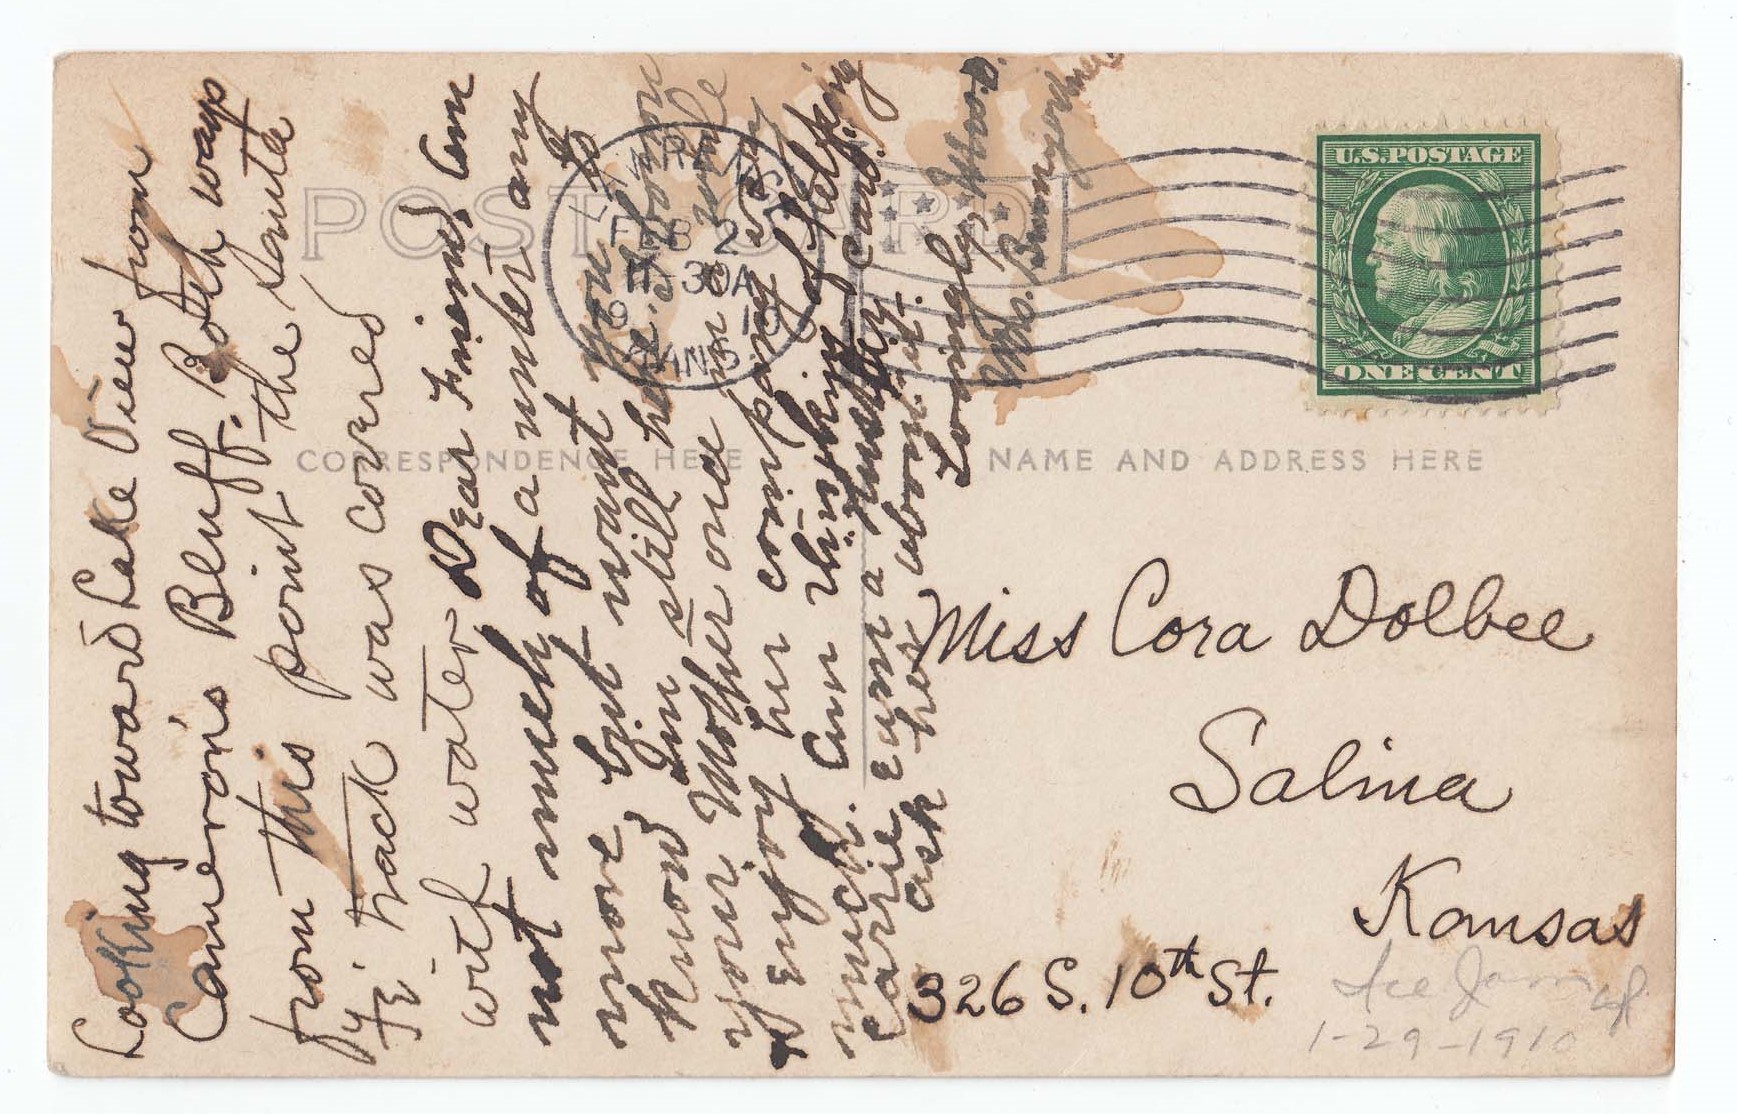 POST CARD
CORRESPONDENCE HERE
NAME AND ADDRESS HERE
LAWRENCE
FEB 2
11 30A
1910
KANS.
U.S. POSTAGE
ONE CENT
Looking toward Lake View from
Cameron's Bluff. Both ways
from this point the Santa
Fe' track was covered
with water
Dear Friend, Am
not much of a writer any
more but want you to
know I'm still here. I born
your Mother once in a while
Enjoy her company very
much. Am thinking of taking
Carrie earn a Hustler card.
ask her about it.
Lovingly yours.
Mrs.
Miss Cora Dolbee
Salina
Kansas
326 S. 10th St.
Ice Jam
1-29-1910